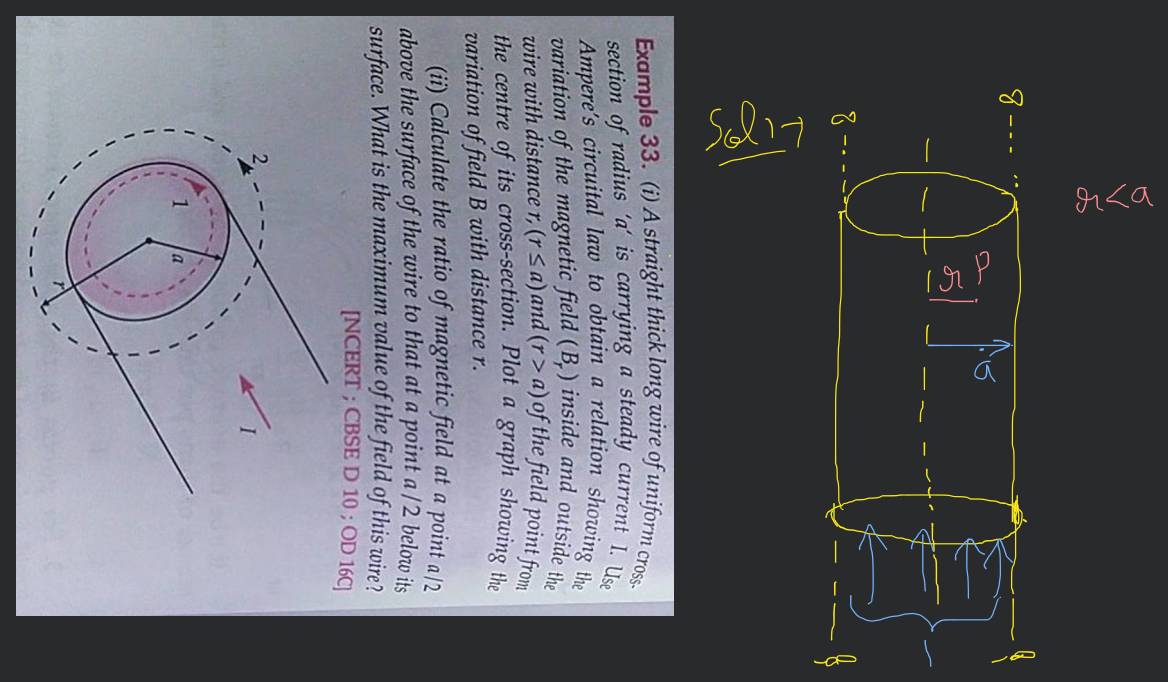 Example 33. (i) A straight thick long wire of uniform cross-
section of radius 'a' is carrying a steady current I. Use
Ampere's circuital law to obtain a relation showing the
variation of the magnetic field (Bᵣ) inside and outside the
wire with distance r, (r ≤ a) and (r > a) of the field point from
the centre of its cross-section. Plot a graph showing the
variation of field B with distance r.
(ii) Calculate the ratio of magnetic field at a point a/2
above the surface of the wire to that at a point a/2 below its
surface. What is the maximum value of the field of this wire?
[NCERT ; CBSE D 10 ; OD 16C]
2
1
a
r
I
Sol:→
∞
∞
r<a
r
P
a
-∞
-∞
I